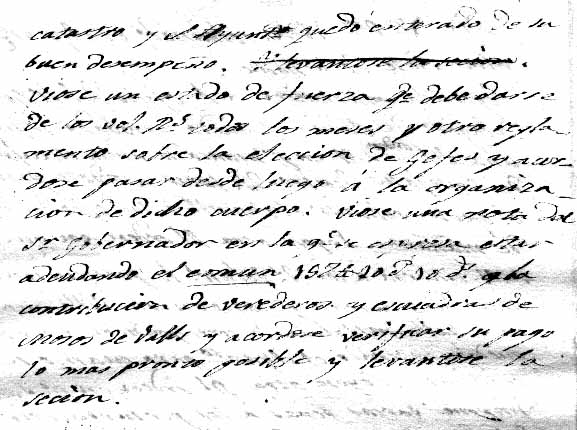 catastro y el Ayunto quedó enterado de su
buen desempeño. Y levantose la secion.
Viose un estado de fuerza qe debe darse
de los vol. Rs todos los meses y otro regla
mento sobre la eleccion de Gefes y acor
dose pasar desde luego á la organiza
cion de dicho cuerpo. Viose una nota del
Sr Gobernador en la qe se espresa estar
adeudando el comun 10 ds
contribucion de verederos y escuadras de
Mosos de Valls y acordose verificar su pago
lo mas pronto posible y levantose la
secion.